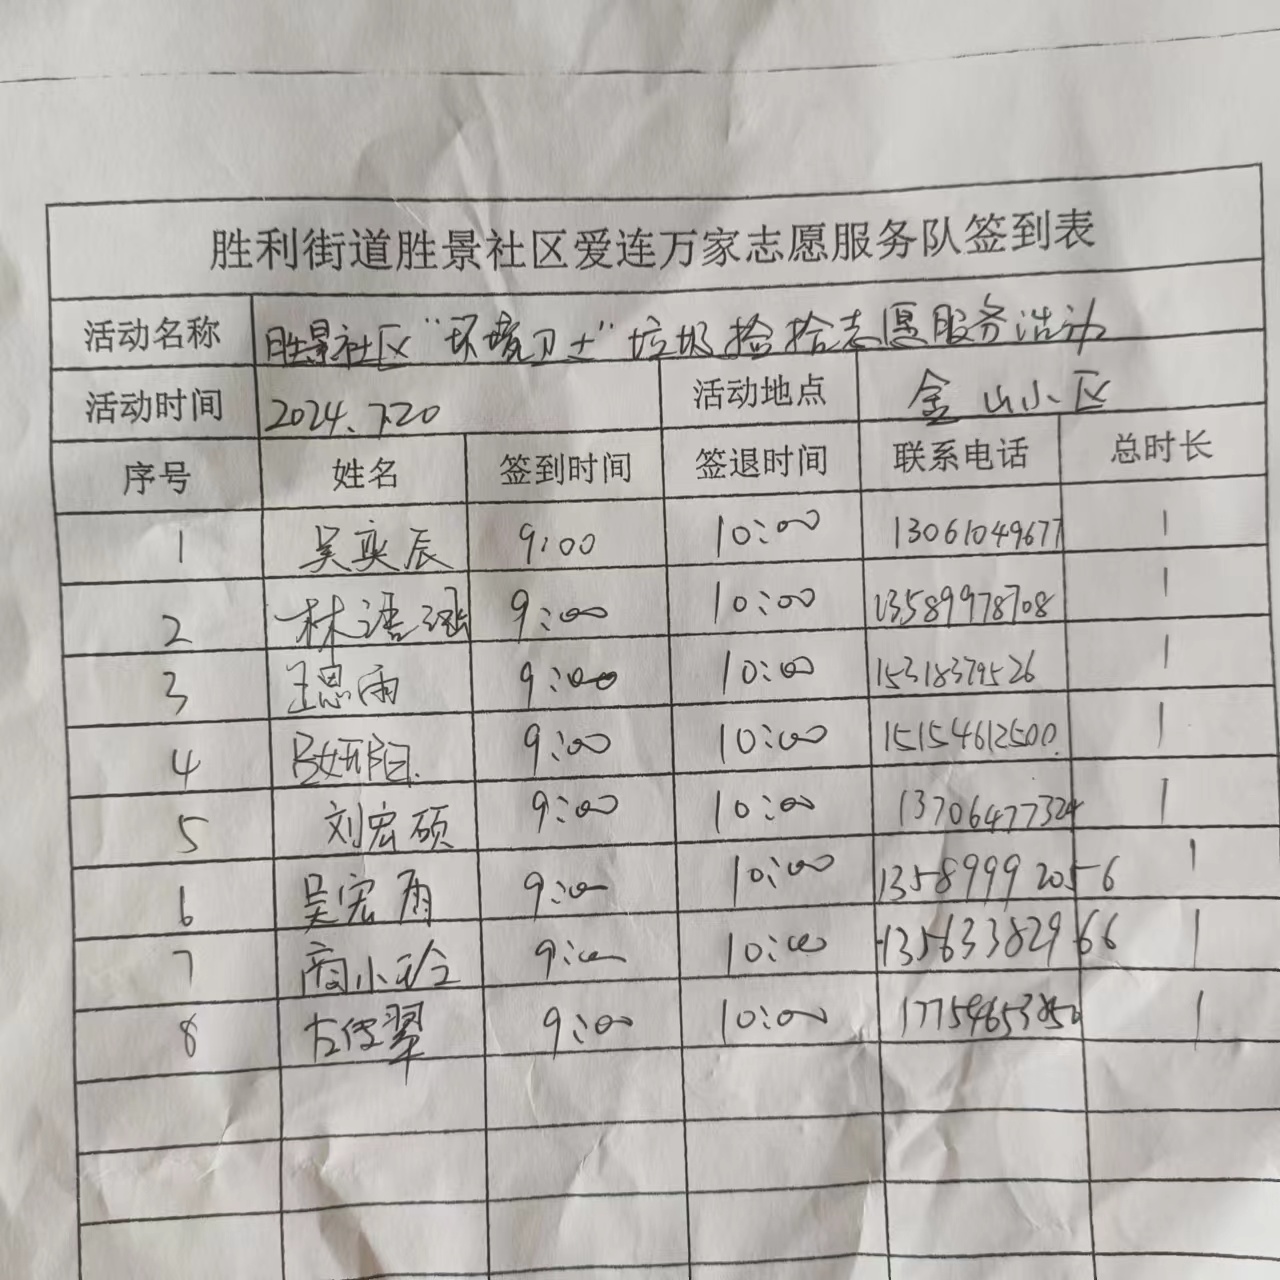 胜利街道胜景社区爱连万家志愿服务队签到表
活动名称 胜景社区“环境卫士”垃圾捡拾志愿服务活动
活动时间 2024.7.20 活动地点 金山小区
序号 姓名 签到时间 签退时间 联系电话 总时长
1 吴奕辰 9:00 10:00 13061049677 1
2 林语涵 9:00 10:00 13589978708 1
3 王思雨 9:00 10:00 15318379526 1
4 9:00 10:00 15154612500 1
5 刘宏硕 9:00 10:00 13706477324 1
6 吴宏雨 9:00 10:00 13589992056 1
7 商小玲 9:00 10:00 13563382966 1
8 9:00 10:00 17754653850 1